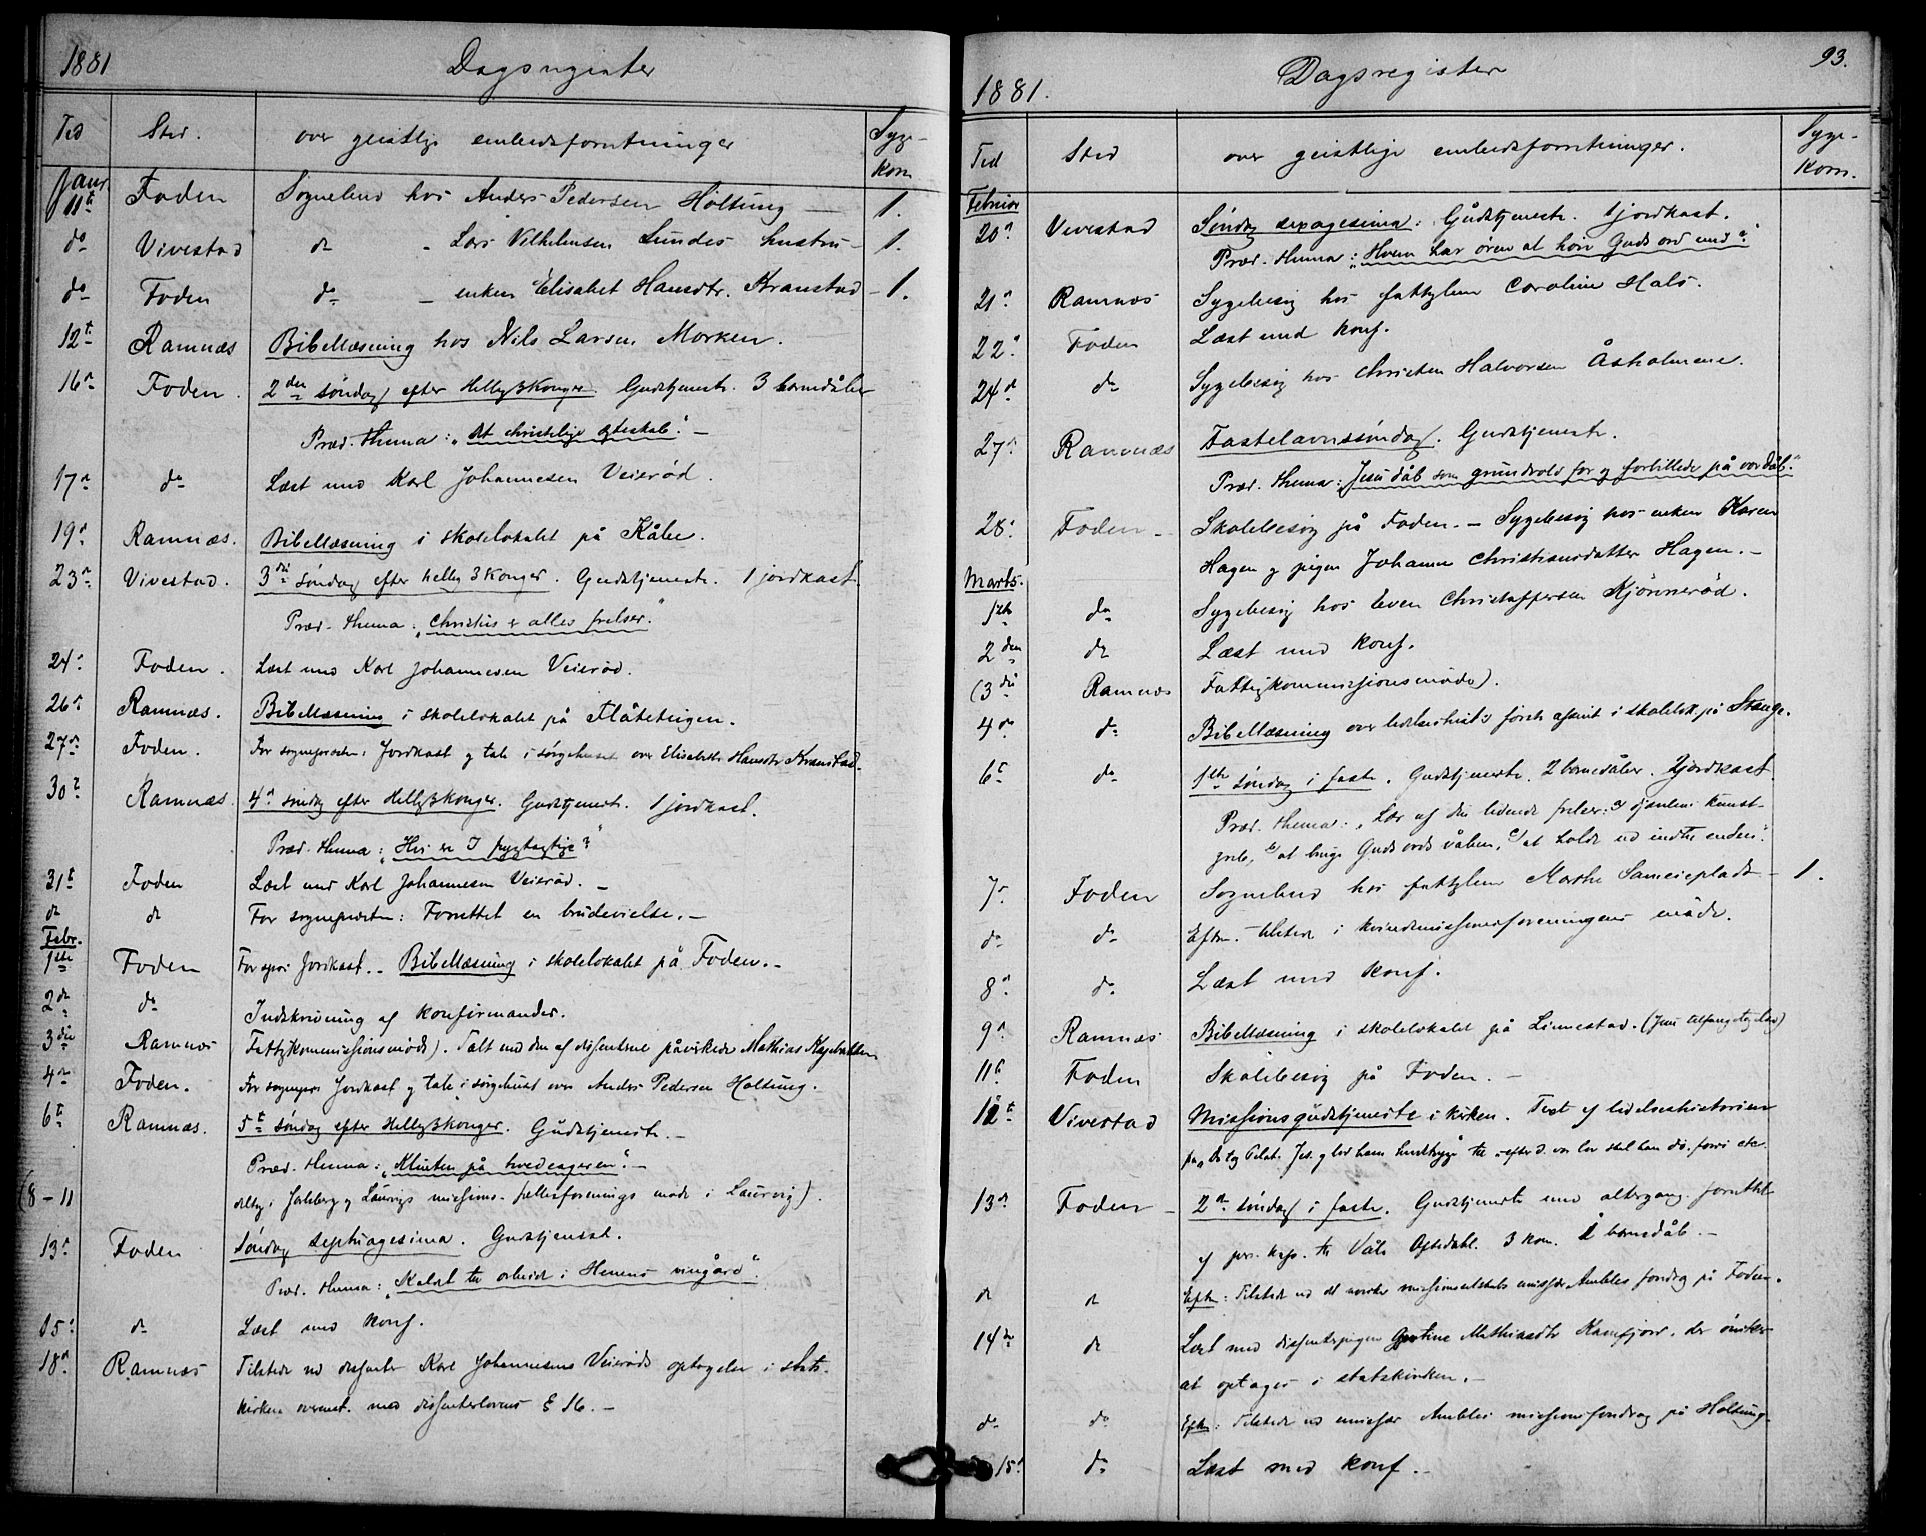 1881 Dagsregister
Tid Sted. over geistlige embedsforretninger Syge-
kom
Janr.
11te Foden Sognebud hos Anders Pedersen Holtung — 1.
do Vivestad do - Lars Vilhelmsen Lundes hustru - 1.
do Foden do - enken Elisabet Hansdtr. Kranstad - 1.
12te Ramnæs Bibellæsning hos Nils Larsen Morken.
16de Foden. 2den søndag efter Hellig3Konger. Gudstjeneste. 3 barnedåber
Præd. thema: "det christelige ægteskab." —
17de do Læst med Karl Johannesen Veierød.
19de Ramnæs. Bibellæsning i skolelokalet på Kåbe.
23de Vivestad. 3die søndag efter hellig 3 Konger. Gudstjeneste. 1 jordkast.
Præd. thema: "Christus er alles frelser."
24de Foden. Læst med Karl Johannesen Veierød.
26de Ramnæs. Bibellæsning i skolelokalet på Flåteteigen.
27de Foden. For sognepresten: Jordkast og tale i sørgehuset over Elisabeth Hansdtr Kranstad.
30te Ramnæs. 4de søndag efter Hellig3Konger. Gudstjeneste. 1 jordkast.
Præd. thema: "Hvi er I frygtagtige?"
31te Foden Læst med Karl Johannesen Veierød. —
do do For sognepresten: Forrettet en brudevielse. —
Febr.
1ste Foden For spr: Jordkast. — Bibellæsning i skolelokalet på Foden. —
2den do Indskrivning af konfirmander.
3die Ramnæs (Fattigkommissionsmöde). Talt med den af dissenterne påvirkede Mathias
4de Foden. For sognepr. Jordkast og tale i sørgehuset over Anders Pedersen Holtung.
6te Ramnæs. 5te søndag efter Hellig3konger. Gudstjeneste. —
Præd. thema: "Klinten på hvedeageren." —
(8-11 deltog i Jarlsberg og Laurvigs missions-fællesforenings møde i Laurvig).
13de Foden Søndag septuagesima. Gudstjenest.
Præd. thema: "Kaldet til arbeide i Herrens vingård".
15de do Læst med konf.
18de Ramnæs Tilstede ved dissenter Karl Johannesens Veierøds optagelse i stats-
kirken overenst. med dissenterlovens § 16. —
93.
1881. Dagsregister
Tid Sted over geistlige embedsforretninger. Syge-
kom.
Februar
20de Vivestad Søndag sexagesima: Gudstjeneste. 1 jordkast.
Præd. thema: "Hvem har øren at høre Guds ord med?"
21de Ramnæs Sygebesøg hos fattiglem Caroline Hals.
22de Foden Læst med konf.
24de do Sygebesøg hos Christen Halvorsen Åsholmene.
27de Ramnæs Fastelavnssøndag. Gudstjeneste.
Præd. thema: "Jesu dåb som grundvold for og forbillede på vor dåb."
28de Foden - Skolebesøg på Foden. - Sygebesøg hos enken Karen
Hagen og pigen Johanne Christiansdatter Hagen. -
Marts.
1ste do Sygebesøg hos Even Christoffersen Kjønnerød.
2den do Læst med konf.
(3die Ramnæs Fattigkommissionsmöde).
4de do Bibellæsning over lidelseshist's første afsnit i skolelok. på Stange.
6te do 1ste søndag i faste. Gudstjeneste. 2 barnedåber. 2 jordkast
Præd. thema: "Lær af den lidende frelser: a) djævlens kunst-
greb, b) at bruge Guds ords våben, c) at holde ud indtil enden."
7de Foden Sognebud hos fattiglem Marthe Sameieplads - 1.
do do Eftm. tilstede i kvindemissionsforeningens møde.
8de do Læst med konf.
9de Ramnæs Bibellæsning i skolelokalet på Linnestad. (Jesu tilfangetagelse)
11te Foden Skolebesøg på Foden. —
12te Vivestad Missionsgudstjeneste i kirken. Text af lidelseshistorien
13de Foden - 2den søndag i faste. Gudstjeneste med altergang forrettet
af pers. kap. til Våle Oftedahl. 3 kom. 1 barnedåb. —
do do Eftm: Tilstede ved det norske missionsselskabs emissær Ambles foredrag på Foden.
14de do Læst med dissenterpigen Mathiasdtr Ramfjord, der ønsker
at optages i statskirken. —
do do Eftm: Tilstede ved emissær Ambles missionsforedrag på Holtung.
15de do Læst med konf. -